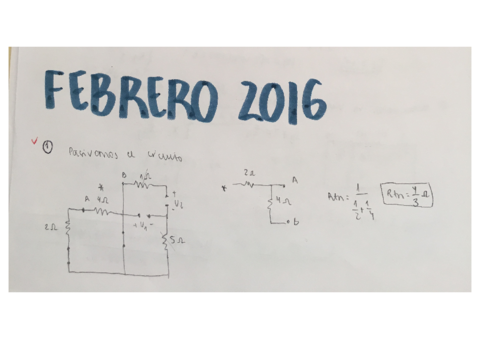 FEBRERO 2016
① Pasivamos el circuito
B 1Ω
+
- V2
*
A 4Ω
+ V1 -
2Ω
5Ω
* 2Ω A
4Ω
B
Rth = 1 / (1/2 + 1/4)
Rth = 4/3 Ω